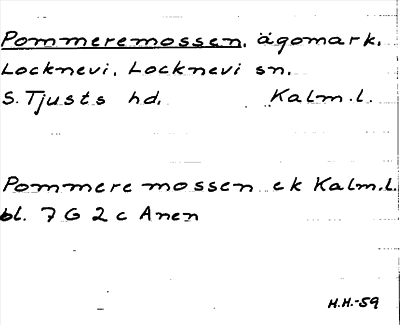 Pommeremossen, ägomark,
Locknevi, Locknevi sn.
S. Tjusts hd. Kalm.l.
Pommere mossen ek Kalm.l.
bl. 7 G 2 c Anen
H.H.-59